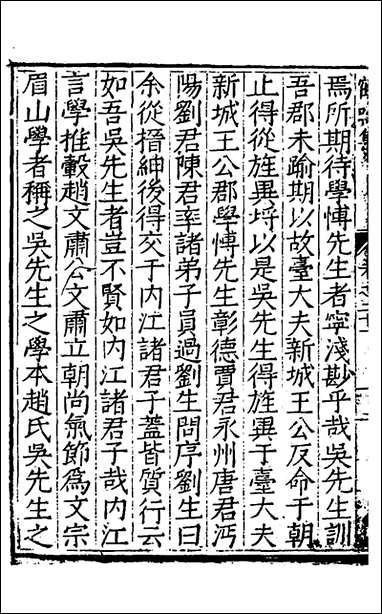 焉所期待學愽先生者寧淺尠乎哉吳先生訓
吾郡未踰期以故臺大夫新城王公反命于朝
止得從旌異埒以是吳先生得旌異于臺大夫
新城王公郡學愽先生彰德賈君永州唐君沔
陽劉君陳君率諸弟子員過劉生問序劉生曰
余從搢紳後得交于内江諸君子蓋皆質行云
如吾吳先生者豈不賢如内江諸君子哉内江
言學推轂趙文肅公文肅立朝尚氣節為文宗
眉山學者稱之吳先生之學本趙氏吳先生之